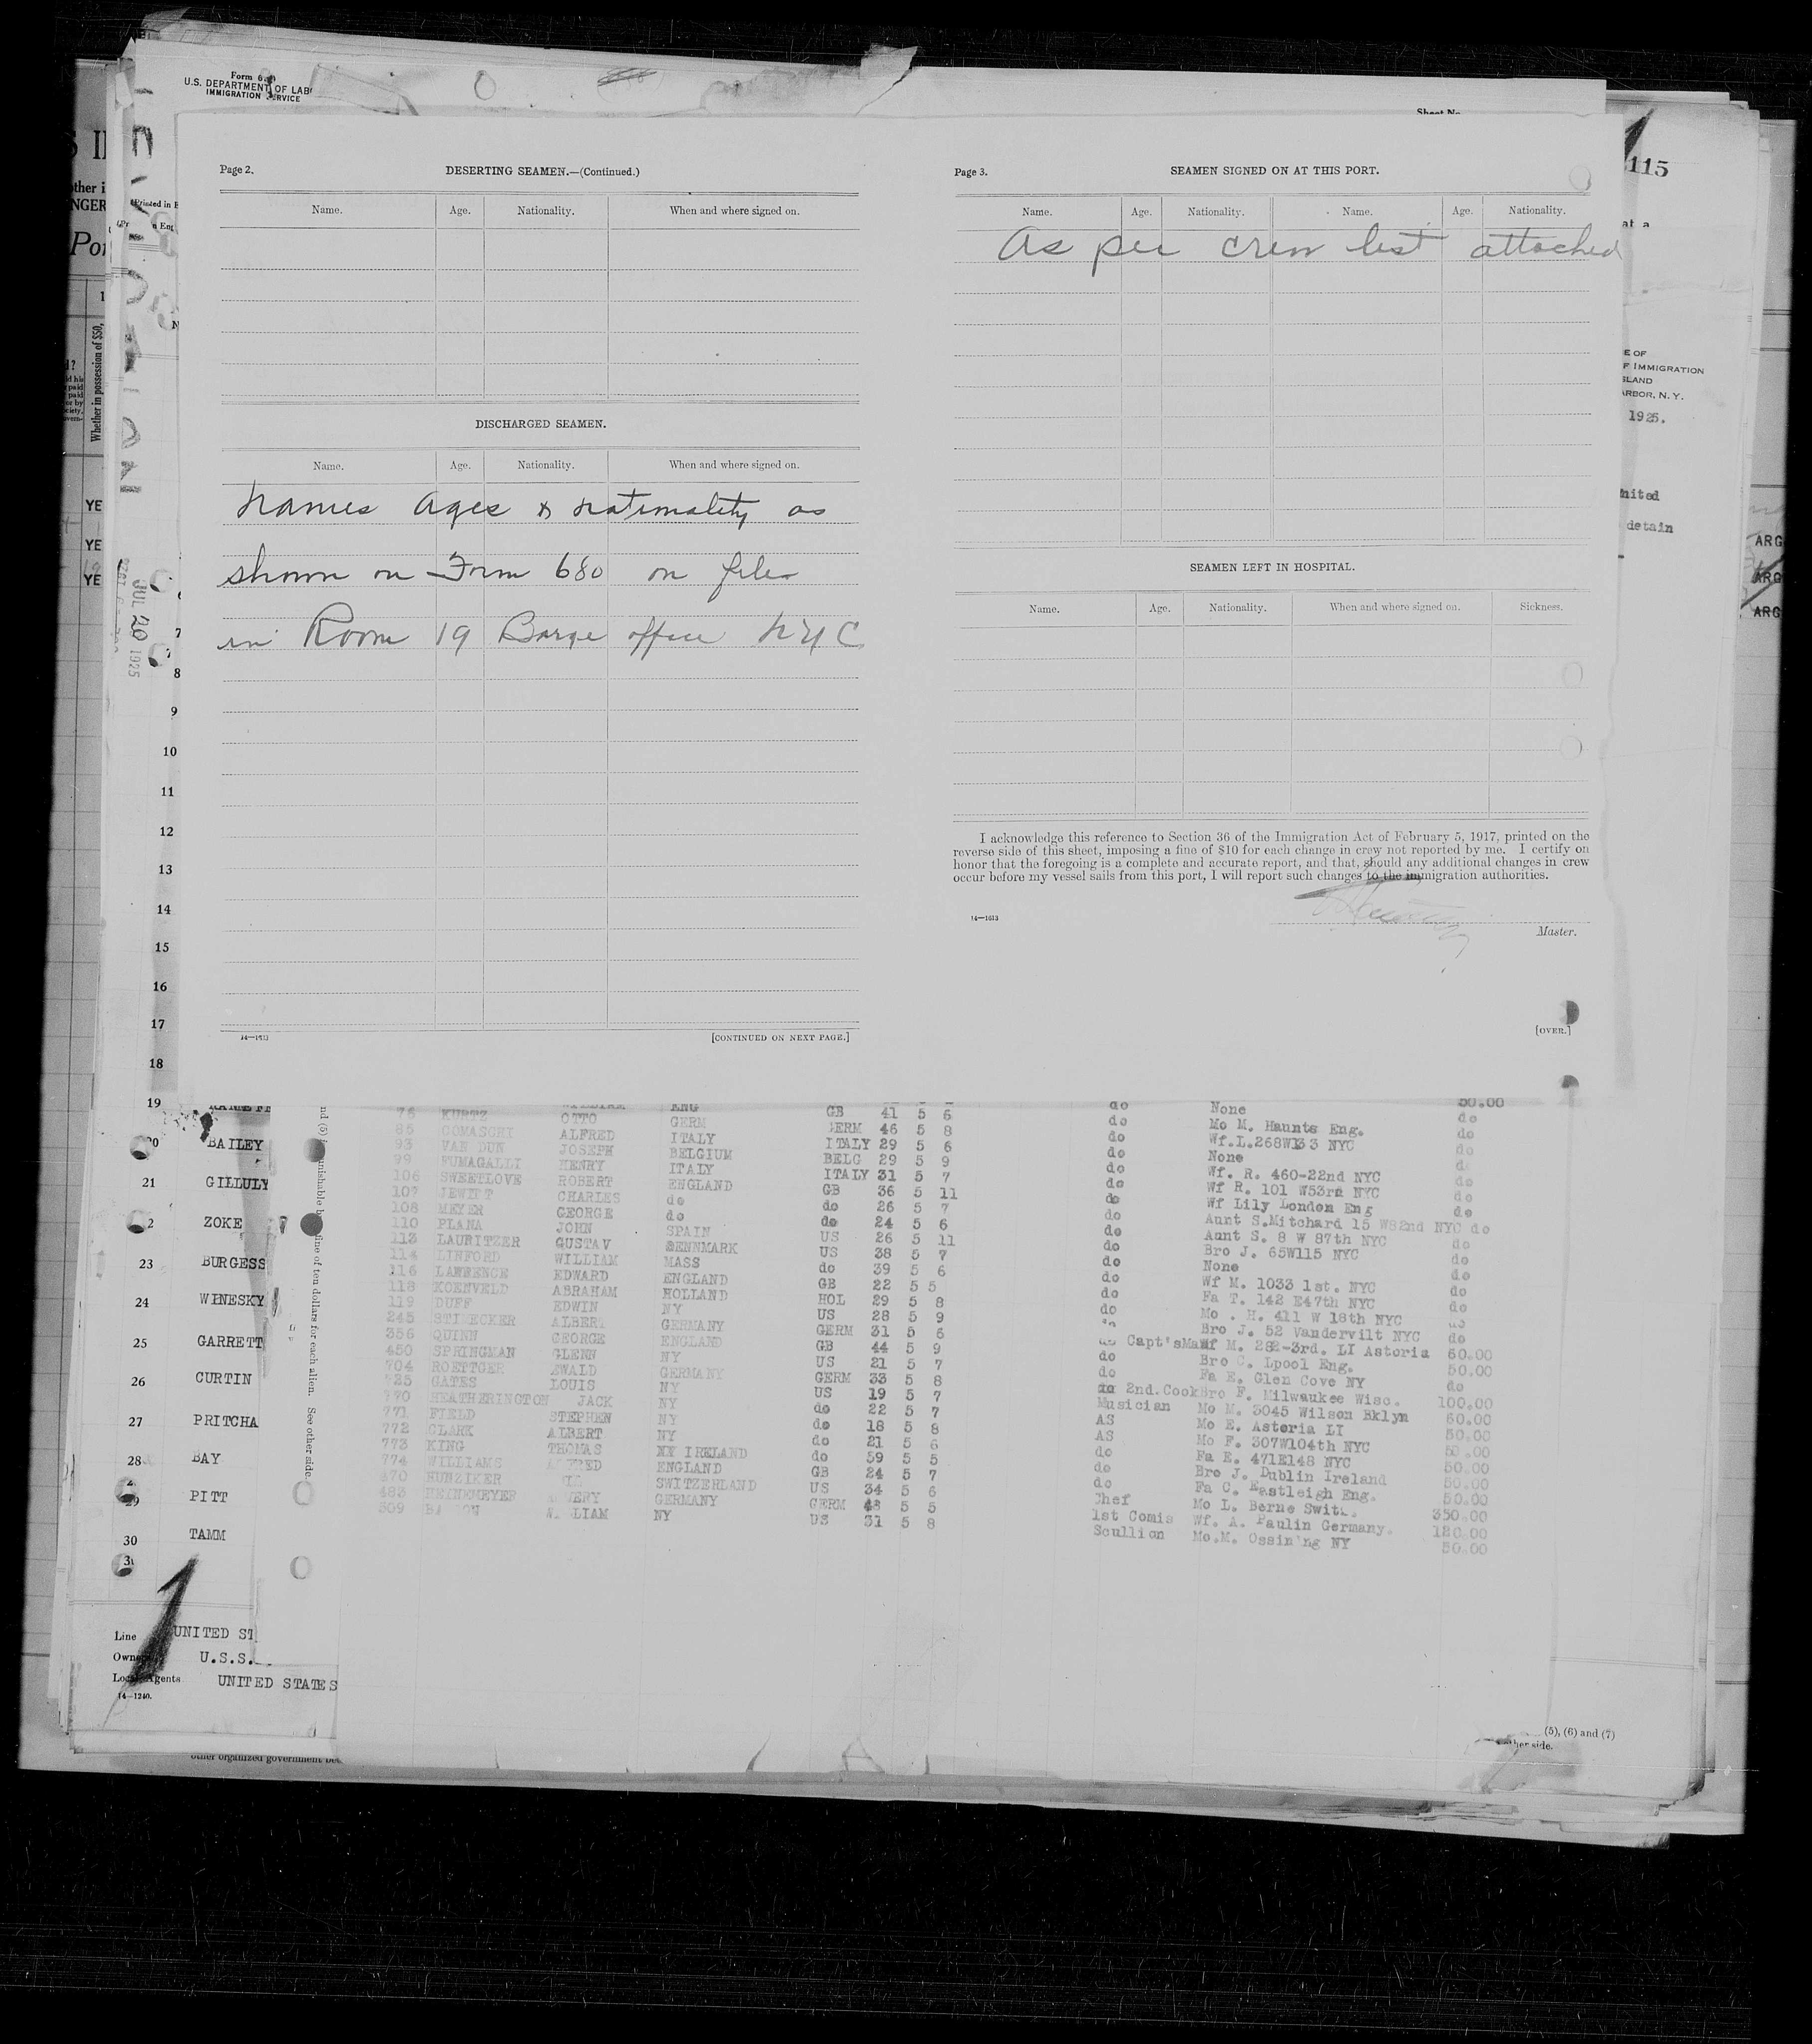 Form 680
U.S. DEPARTMENT OF LAB
IMMIGRATION SERVICE
Sheet No.
115
Page 2.
DESERTING SEAMEN.—(Continued.)
Name. Age. Nationality. When and where signed on.
DISCHARGED SEAMEN.
Name. Age. Nationality. When and where signed on.
Names Ages & nationality as
shown on Form 680 on file
in Room 19 Barge office NYC
14—1613
[CONTINUED ON NEXT PAGE.]
Page 3.
SEAMEN SIGNED ON AT THIS PORT.
Name. Age. Nationality. Name. Age. Nationality.
As per crew list attached
SEAMEN LEFT IN HOSPITAL.
Name. Age. Nationality. When and where signed on. Sickness.
I acknowledge this reference to Section 36 of the Immigration Act of February 5, 1917, printed on the
reverse side of this sheet, imposing a fine of $10 for each change in crew not reported by me. I certify on
honor that the foregoing is a complete and accurate report, and that, should any additional changes in crew
occur before my vessel sails from this port, I will report such changes to the immigration authorities.
14—1613
Master.
[OVER.]
E OF
F IMMIGRATION
SLAND
ARBOR, N. Y.
1925.
nited
detain
ARG
ARG
ARG
Whether in possession of $50,
YE
YE
YE
JUL 20 1925
7
8
9
10
11
12
13
14
15
16
17
18
19
BAILEY
21 GILLULY
ZOKE
23 BURGESS
24 WINESKY
25 GARRETT
26 CURTIN
27 PRITCHA
28 BAY
29 PITT
30 TAMM
Line UNITED ST
Owner U.S.S.
Local Agents UNITED STATES
14—1240.
fine of ten dollars for each alien. See other side.
76 KURTZ OTTO GERM GB 41 5 6 do None 50.00
86 COMASGRY ALFRED ITALY GERM 46 5 8 do Mo M. Haunts Eng. do
93 VAN DUN JOSEPH BELGIUM ITALY 29 5 6 do Wf.L.268W133 NYC do
99 FUMAGALLI HENRY ITALY BELG 29 5 9 do None
106 SWEETLOVE ROBERT ENGLAND ITALY 31 5 7 do Wf. R. 460-22nd NYC do
107 JEWITT CHARLES do GB 36 5 11 do Wf R. 101 W53rd NYC do
108 MEYER GEORGE do do 26 5 7 do Wf Lily London Eng do
110 PLANA JOHN SPAIN do 24 5 6 do Aunt S.Mitchard 15 W82nd NYC do
113 LAURITZER GUSTAV DENNMARK US 26 5 11 do Aunt S. 8 W 87th NYC do
114 LINFORD WILLIAM MASS US 38 5 7 do Bro J. 65W115 NYC do
116 LAWRENCE EDWARD ENGLAND do 39 5 6 do None do
118 KOENVELD ABRAHAM HOLLAND GB 22 5 5 do Wf M. 1033 1st. NYC do
119 DUFF EDWIN NY HOL 29 5 8 do Fa T. 142 E47th NYC do
245 ALBERT GERMANY US 28 5 9 do Mo . H. 411 W 18th NYC
356 QUINN GEORGE ENGLAND GERM 31 5 6 Bro J. 52 Vandervilt NYC do
450 SPRINGMAN GLENN NY GB 44 5 9 Capt'sMan Wf M. 282-3rd. LI Astoria 60.00
704 ROETTGER EWALD GERMANY US 21 5 7 do Bro C. Lpool Eng. 50.00
725 GATES LOUIS NY GERM 33 5 8 do Fa E. Glen Cove NY do
770 HEATHERINGTON JACK NY US 19 5 7 2nd.Cook Bro F. Milwaukee Wisc. 100.00
771 FIELD STEPHEN NY do 22 5 7 Musician Mo M. 3045 Wilson Bklyn 60.00
772 CLARK ALBERT NY do 18 5 8 AS Mo E. Astoria LI 50.00
773 KING THOMAS NY IRELAND do 21 5 6 AS Mo F. 307W104th NYC 50.00
774 WILLIAMS ALFRED ENGLAND do 59 5 5 do Fa E. 471E148 NYC 50.00
470 HUNZIKER SWITZERLAND GB 24 5 7 do Bro J. Dublin Ireland 50.00
483 HEINEMEYER GERMANY US 34 5 6 do Fa C. Eastleigh Eng. 50.00
509 WILLIAM NY GERM 48 5 5 Chef Mo L. Berne Switz. 350.00
US 31 5 8 1st Comis Wf. A. Paulin Germany. 120.00
Scullion Mo.M. Ossining NY 50.00
(5), (6) and (7)
other side.
other organized government